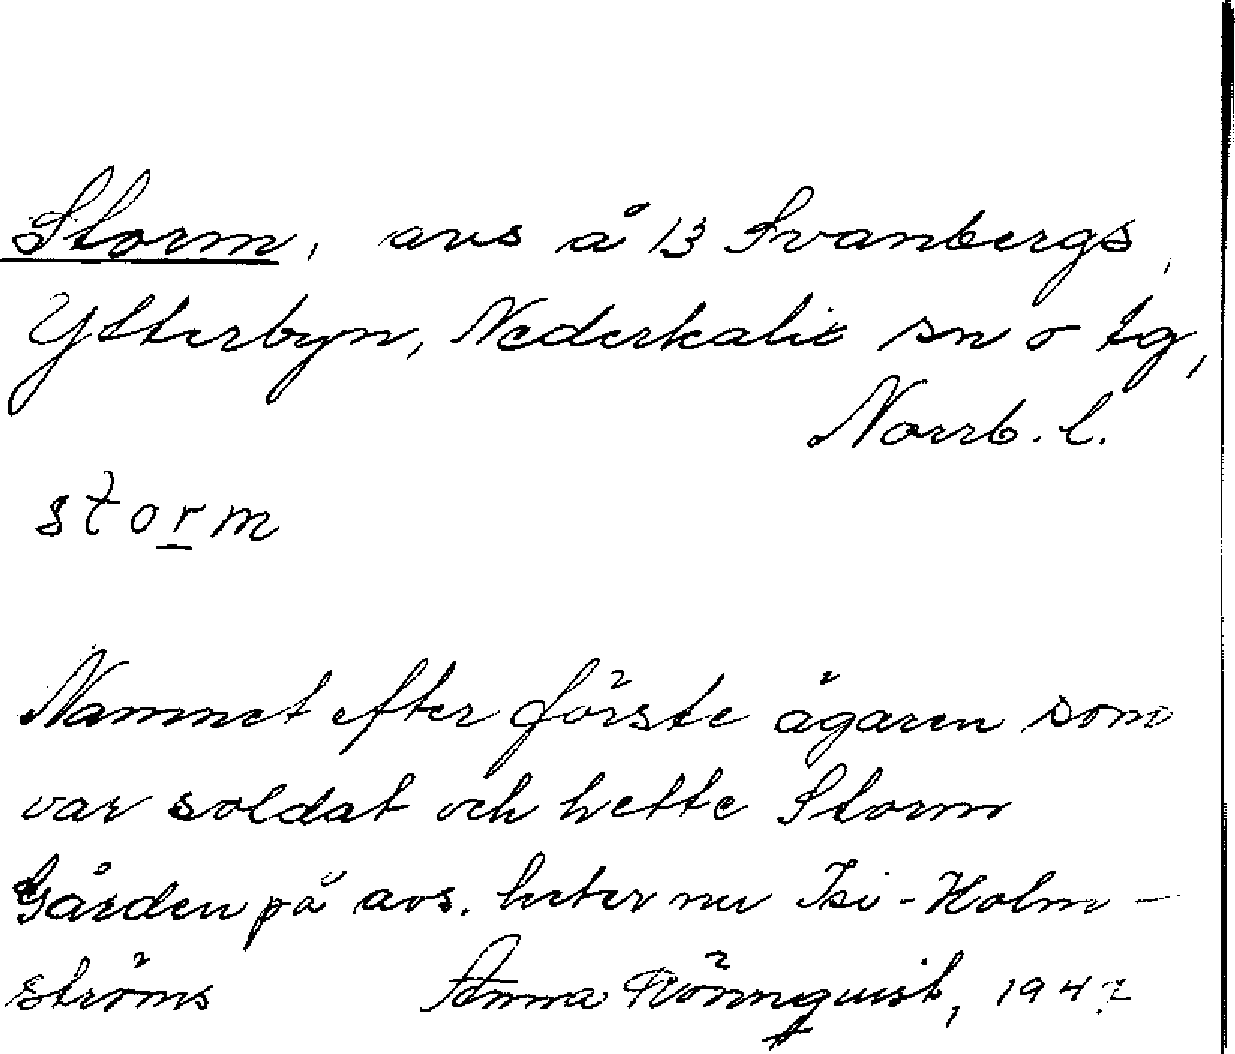 Storm, avs å 13 Svanbergs,
Ytterbyn, Nederkalix sn o tg,
Norrb. l.
storm
Namnet efter förste ägaren som
var soldat och hette Storm
Gården på avs. heter nu Isi-Holm-
ströms Anna Rönnquist, 1947